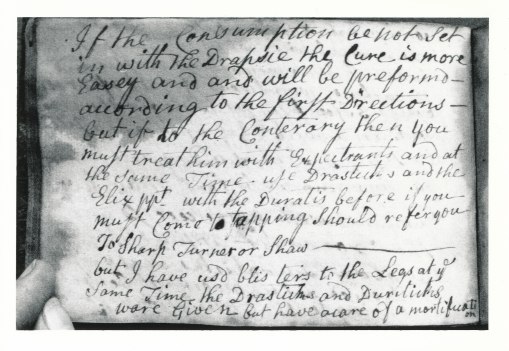 If the Consumption be not Set
in with the Drapsie the Cure is more
Easey and and will be preformd
according to the first Directions
but if to the Conterary then you
must treat him with Expectrants and at
the same Time use Drasticks and the
Elix ppt with the Duratis before if you
must Come to tapping should refer you
To Sharp Turner or Shaw
but I have usd blisters to the Legs at ye
Same Time the Drasticks and Duriticks
ware Given but have a care of a mortification